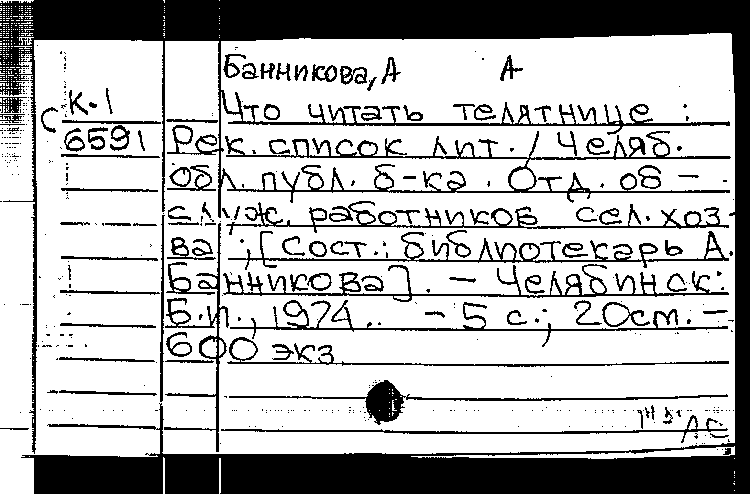 Банникова, А А
С К-1 Что читать телятнице :
6591 Рек. список лит. / Челяб.
обл. публ. б-ка. Отд. об-
служ. работников сел. хоз-
ва ; [Сост.: библиотекарь А.
Банникова]. - Челябинск:
Б.и., 1974.. - 5 с.; 20см. -
600 экз.
АС